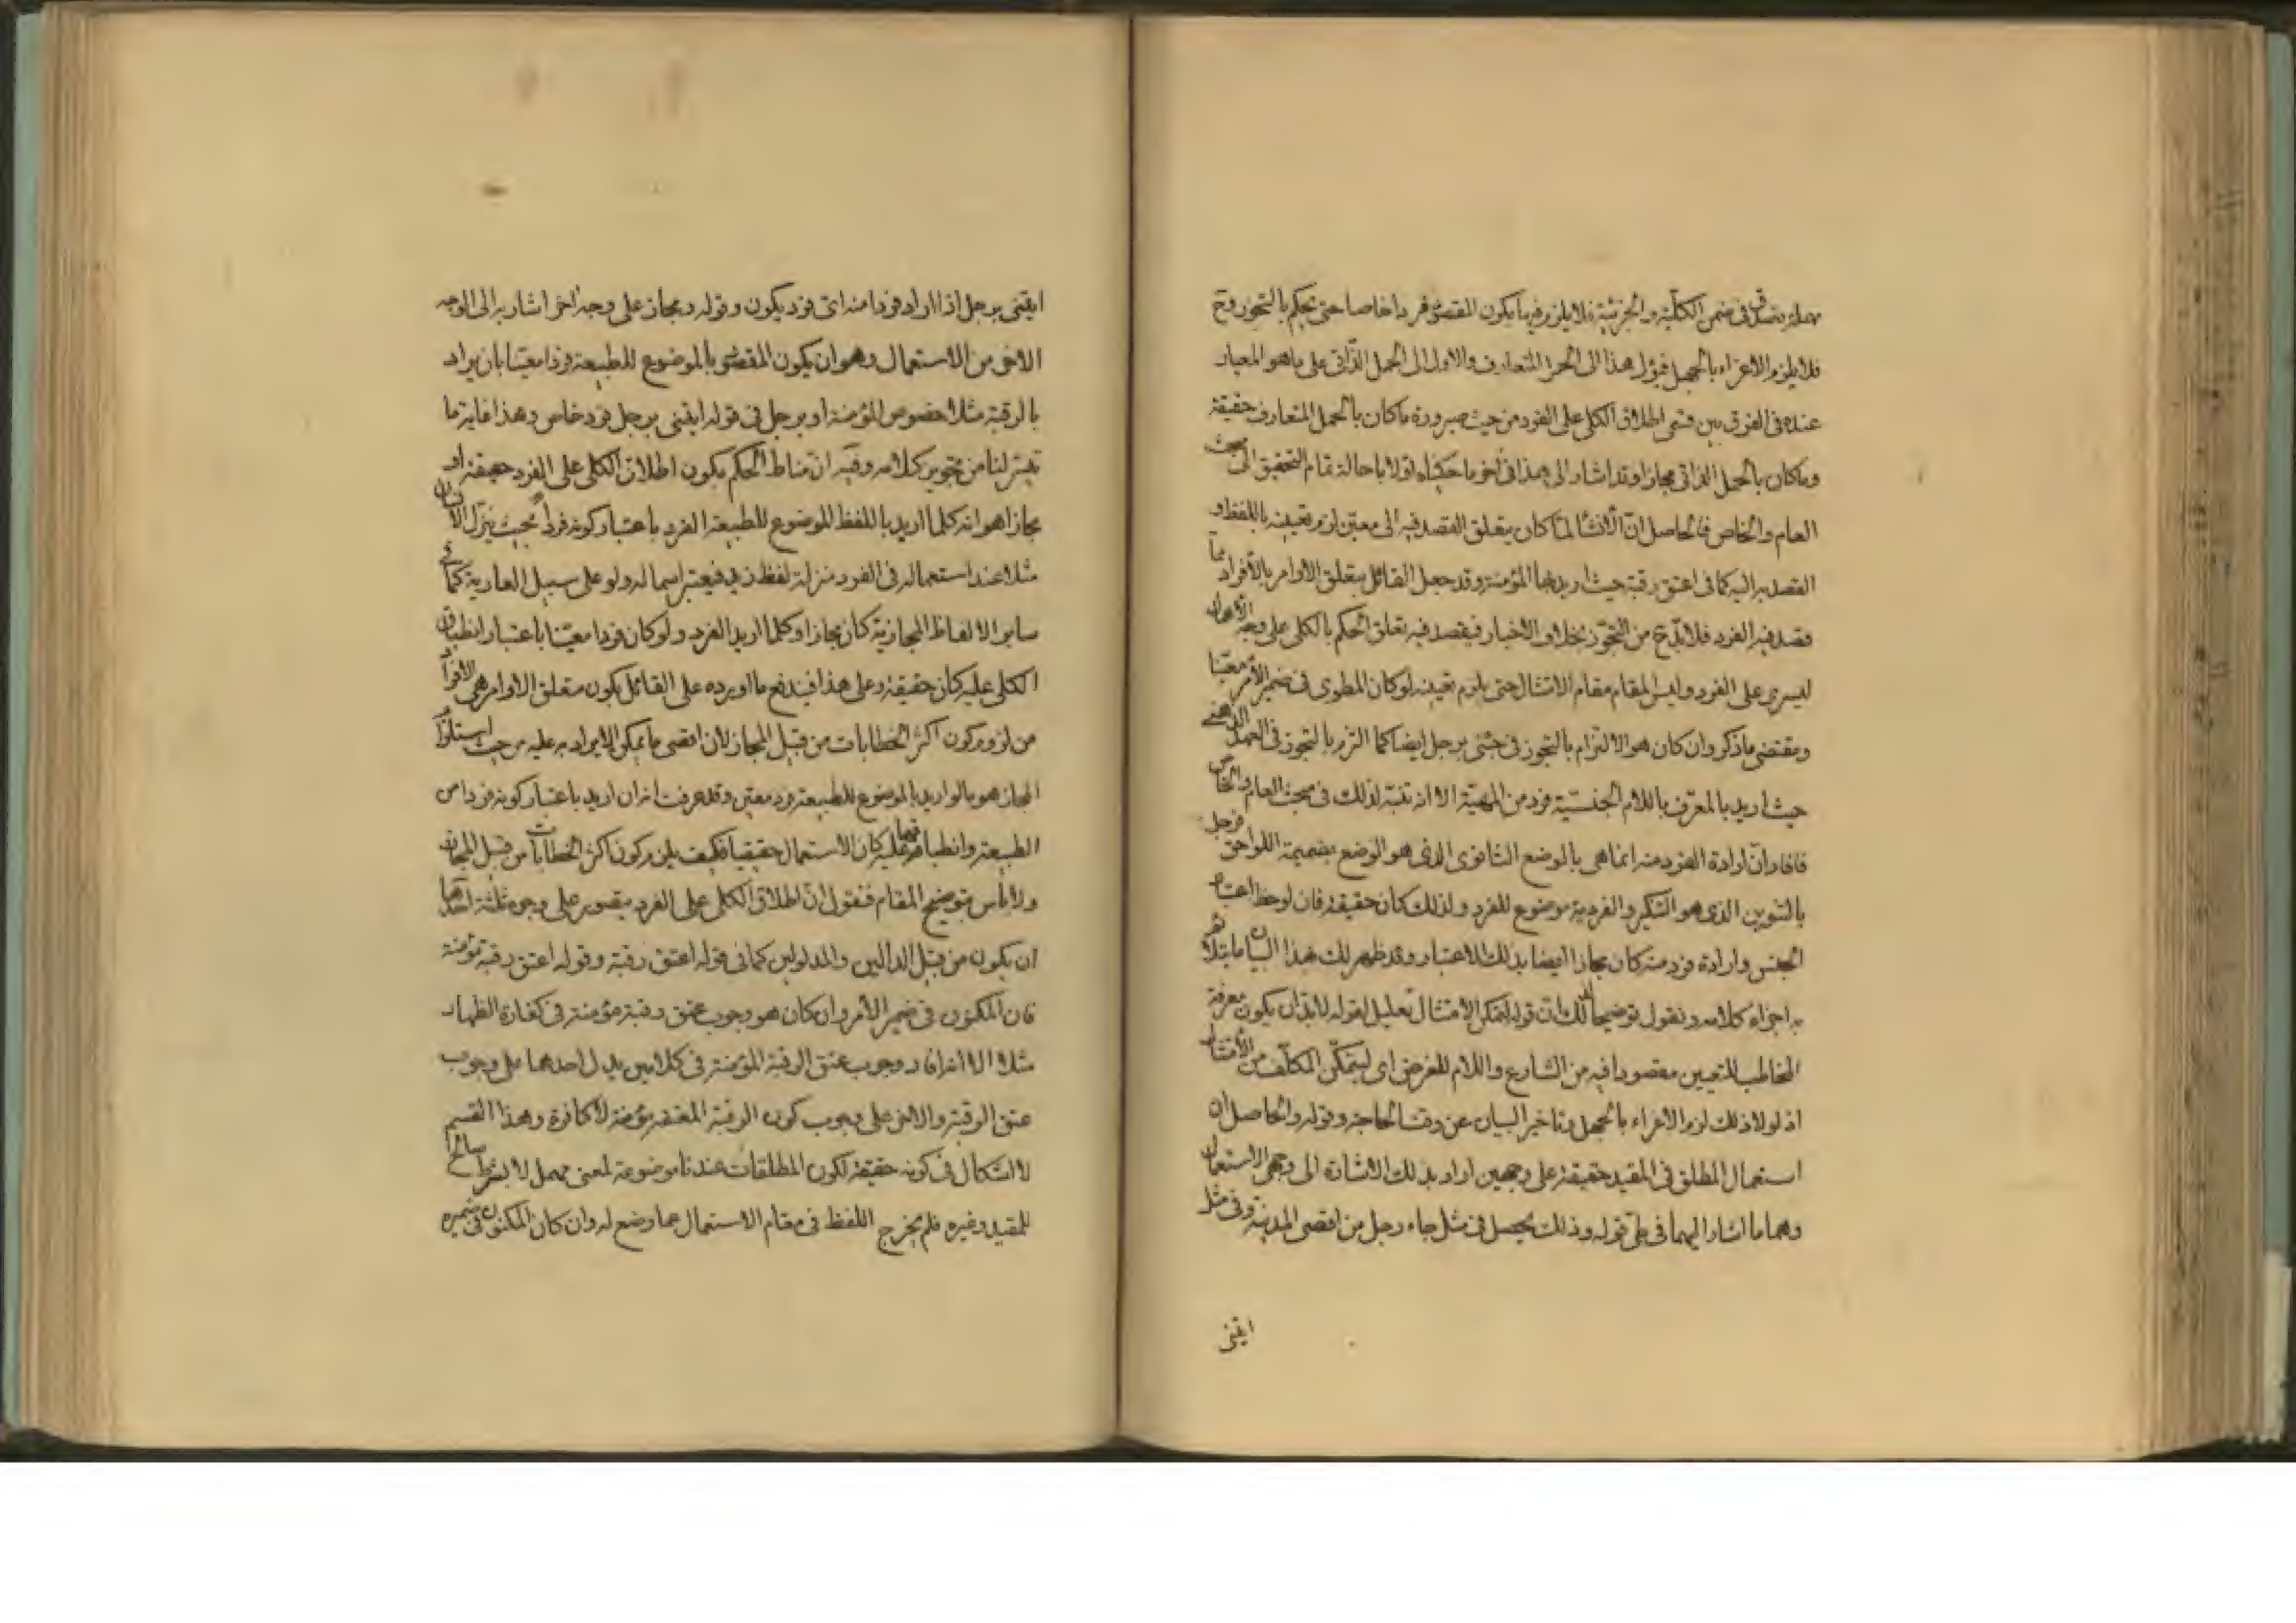 مهملة يصدق في ضمن الكلية والجزئية فلا يلزم فيها يكون المقصود فردا خاصا حتى يحكم بالتجوز وح
فلا يلزم الاغراء بالجهل فيؤل هذا الى الحمل المتعارف والاول الى الحمل الذاتي على ما هو المعيار
عنده في الفرق بين قسمى اطلاق الكلى على الفرد من حيث صيرورة ما كان بالحمل المتعارف حقيقة
وما كان بالحمل الذاتي مجازا وقد اشار الى هذا في آخر ما حكيناه اولا باحالة تمام التحقيق الى مبحث
العام والخاص فالحاصل ان الانشاء لما كان يتعلق القصد فيه الى معين لزم تعيينه باللفظ و
القصد به اليه كما في اعتق رقبة حيث اريد بها المؤمنة وقد جعل القائل بتعلق الاوامر بالأفراد مما
قصد فيه الفرد فلا بد ح من التجوز بخلاف الاخبار فيقصد فيه تعلق الحكم بالكلى على وجه الاهمال
ليسرى على الفرد وليس المقام مقام الامتثال حتى يلزم تعيينه لو كان المطوى في ضمير الأمر معينا
ومقتضى ما ذكر وان كان هو الالتزام بالتجوز في جئني برجل ايضا كما التزم بالتجوز في العهد الذهني
حيث اريد بالمعرف باللام الجنسية فرد من المهية الا انه تنبه لذلك في مبحث العام والخاص
فافاد ان ارادة الفرد منه انما هي بالوضع الثانوى الذي هو الوضع بضميمة اللواحق فرجل
بالتنوين الذي هو التنكير والفردية موضوع للفرد ولذلك كان حقيقة فان لوحظ اعتبار
الجنس وارادة فرد منه كان مجازا ايضا بذلك الاعتبار وقد ظهر لك هذا البيان ما
به اجزاء كلامه ونقول توضيحا لذلك ان قوله ليمكن الامتثال تعليل لقوله لا بد ان يكون معرفة
المخاطب للتعيين مقصودا فيه من الشارع واللام للغرض اى ليتمكن المكلف من الأمتثال
اذ لولا ذلك لزم الاغراء بالجهل وتاخير البيان عن وقت الحاجة وقوله والحاصل ان
استعمال المطلق في المقيد حقيقة على وجهين اراد بذلك الاشارة الى وجهى الاستعمال
وهما ما اشار اليهما في طى قوله وذلك يحصل في مثل جاء رجل من اقصى المدينة وفي مثل
ايتنى
ايتنى برجل اذا اراد فردا منه اى فرد يكون وقوله ومجاز على وجه اخر اشار به الى الوجه
الاخر من الاستعمال وهو ان يكون المقصود بالموضوع للطبيعة فردا معينا بان يراد
بالرقبة مثلا خصوص المؤمنة او برجل في قوله ايتنى برجل فرد خاص وهذا غاية ما
تيسر لنا من تحرير كلامه وفيه ان مناط الحكم بكون اطلاق الكلى على الفرد حقيقة او
مجازا هو انه كلما اريد باللفظ الموضوع للطبيعة الفرد باعتبار كونه فردا بحيث ينزل الانسان
مثلا عند استعماله في الفرد منزلة لفظ زيد فيعتبر اسما له ولو على سبيل العارية كما في
ساير الالفاظ المجازية كان مجازا وكلما اريد الفرد ولو كان فردا معينا باعتبار انطباق
الكلى عليه كان حقيقة وعلى هذا فيندفع ما اورده على القائل بكون متعلق الاوامر هي الافراد
من لزوم كون اكثر الخطابات من قبيل المجاز لان اقصى ما يمكن الايراد به عليه من حيث استلزام
المجاز هو ما لو اريد بالموضوع للطبيعة فرد معين وقد عرفت انه ان اريد باعتبار كونه فردا من
الطبيعة وانطباقها عليه كان الاستعمال حقيقيا فكيف يلزم كون اكثر الخطابات من قبيل المجاز
ولا بأس بتوضيح المقام فنقول ان اطلاق الكلى على الفرد يتصور على وجوه ثلثة احدها
ان يكون من قبيل الدالين والمدلولين كما في قوله اعتق رقبة وقوله اعتق رقبة مؤمنة
فان المكنون في ضمير الأمر وان كان هو وجوب عتق رقبة مؤمنة في كفارة الظهار
مثلا الا انه افاد وجوب عتق الرقبة المؤمنة في كلامين يدل احدهما على وجوب
عتق الرقبة والاخر على وجوب كون الرقبة المعتقة مؤمنة لا كافرة وهذا القسم
لا اشكال في كونه حقيقة لكون المطلقات عندنا موضوعة لمعنى مهمل لا بشرط صالح
للمقيد وغيره فلم يخرج اللفظ في مقام الاستعمال عما وضع له وان كان المكنون في ضميره